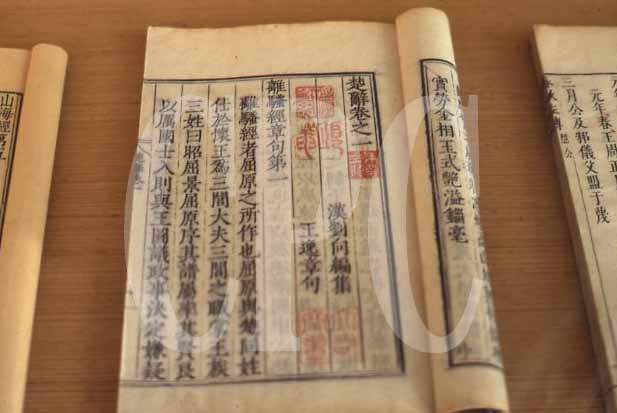 元年春王周正
三月公及邾儀父盟于蔑
金相玉式艷溢錙毫
楚辭卷之一
漢劉向編集
王逸章句
離騷經章句第一
離騷經者屈原之所作也屈原與楚同姓
仕於懷王爲三閭大夫三閭之職掌王族
三姓曰昭屈景屈原序其譜屬率其賢良
以厲國士入則與王圖議政事決定嫌疑
山海經第五